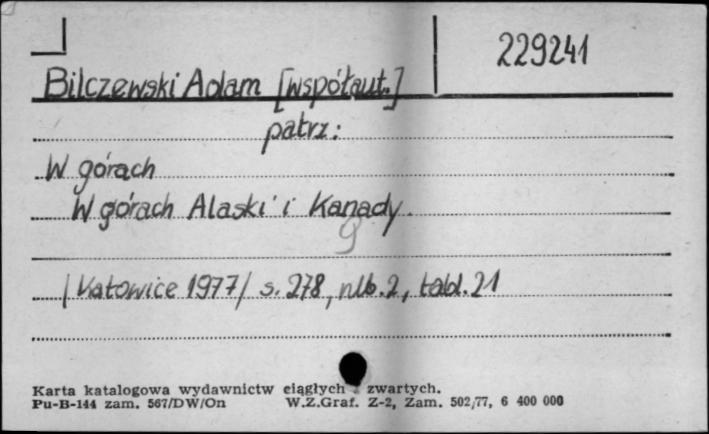 229241
Bilczewski Adam [współaut.]
patrz:
W górach
W górach Alaski i Kanady.
9
/Katowice 1977/ s. 278, nlb. 2, tabl. 21
Karta katalogowa wydawnictw ciągłych i zwartych.
Pu-B-144 zam. 567/DW/On W.Z.Graf. Z-2, Zam. 502/77, 6 400 000